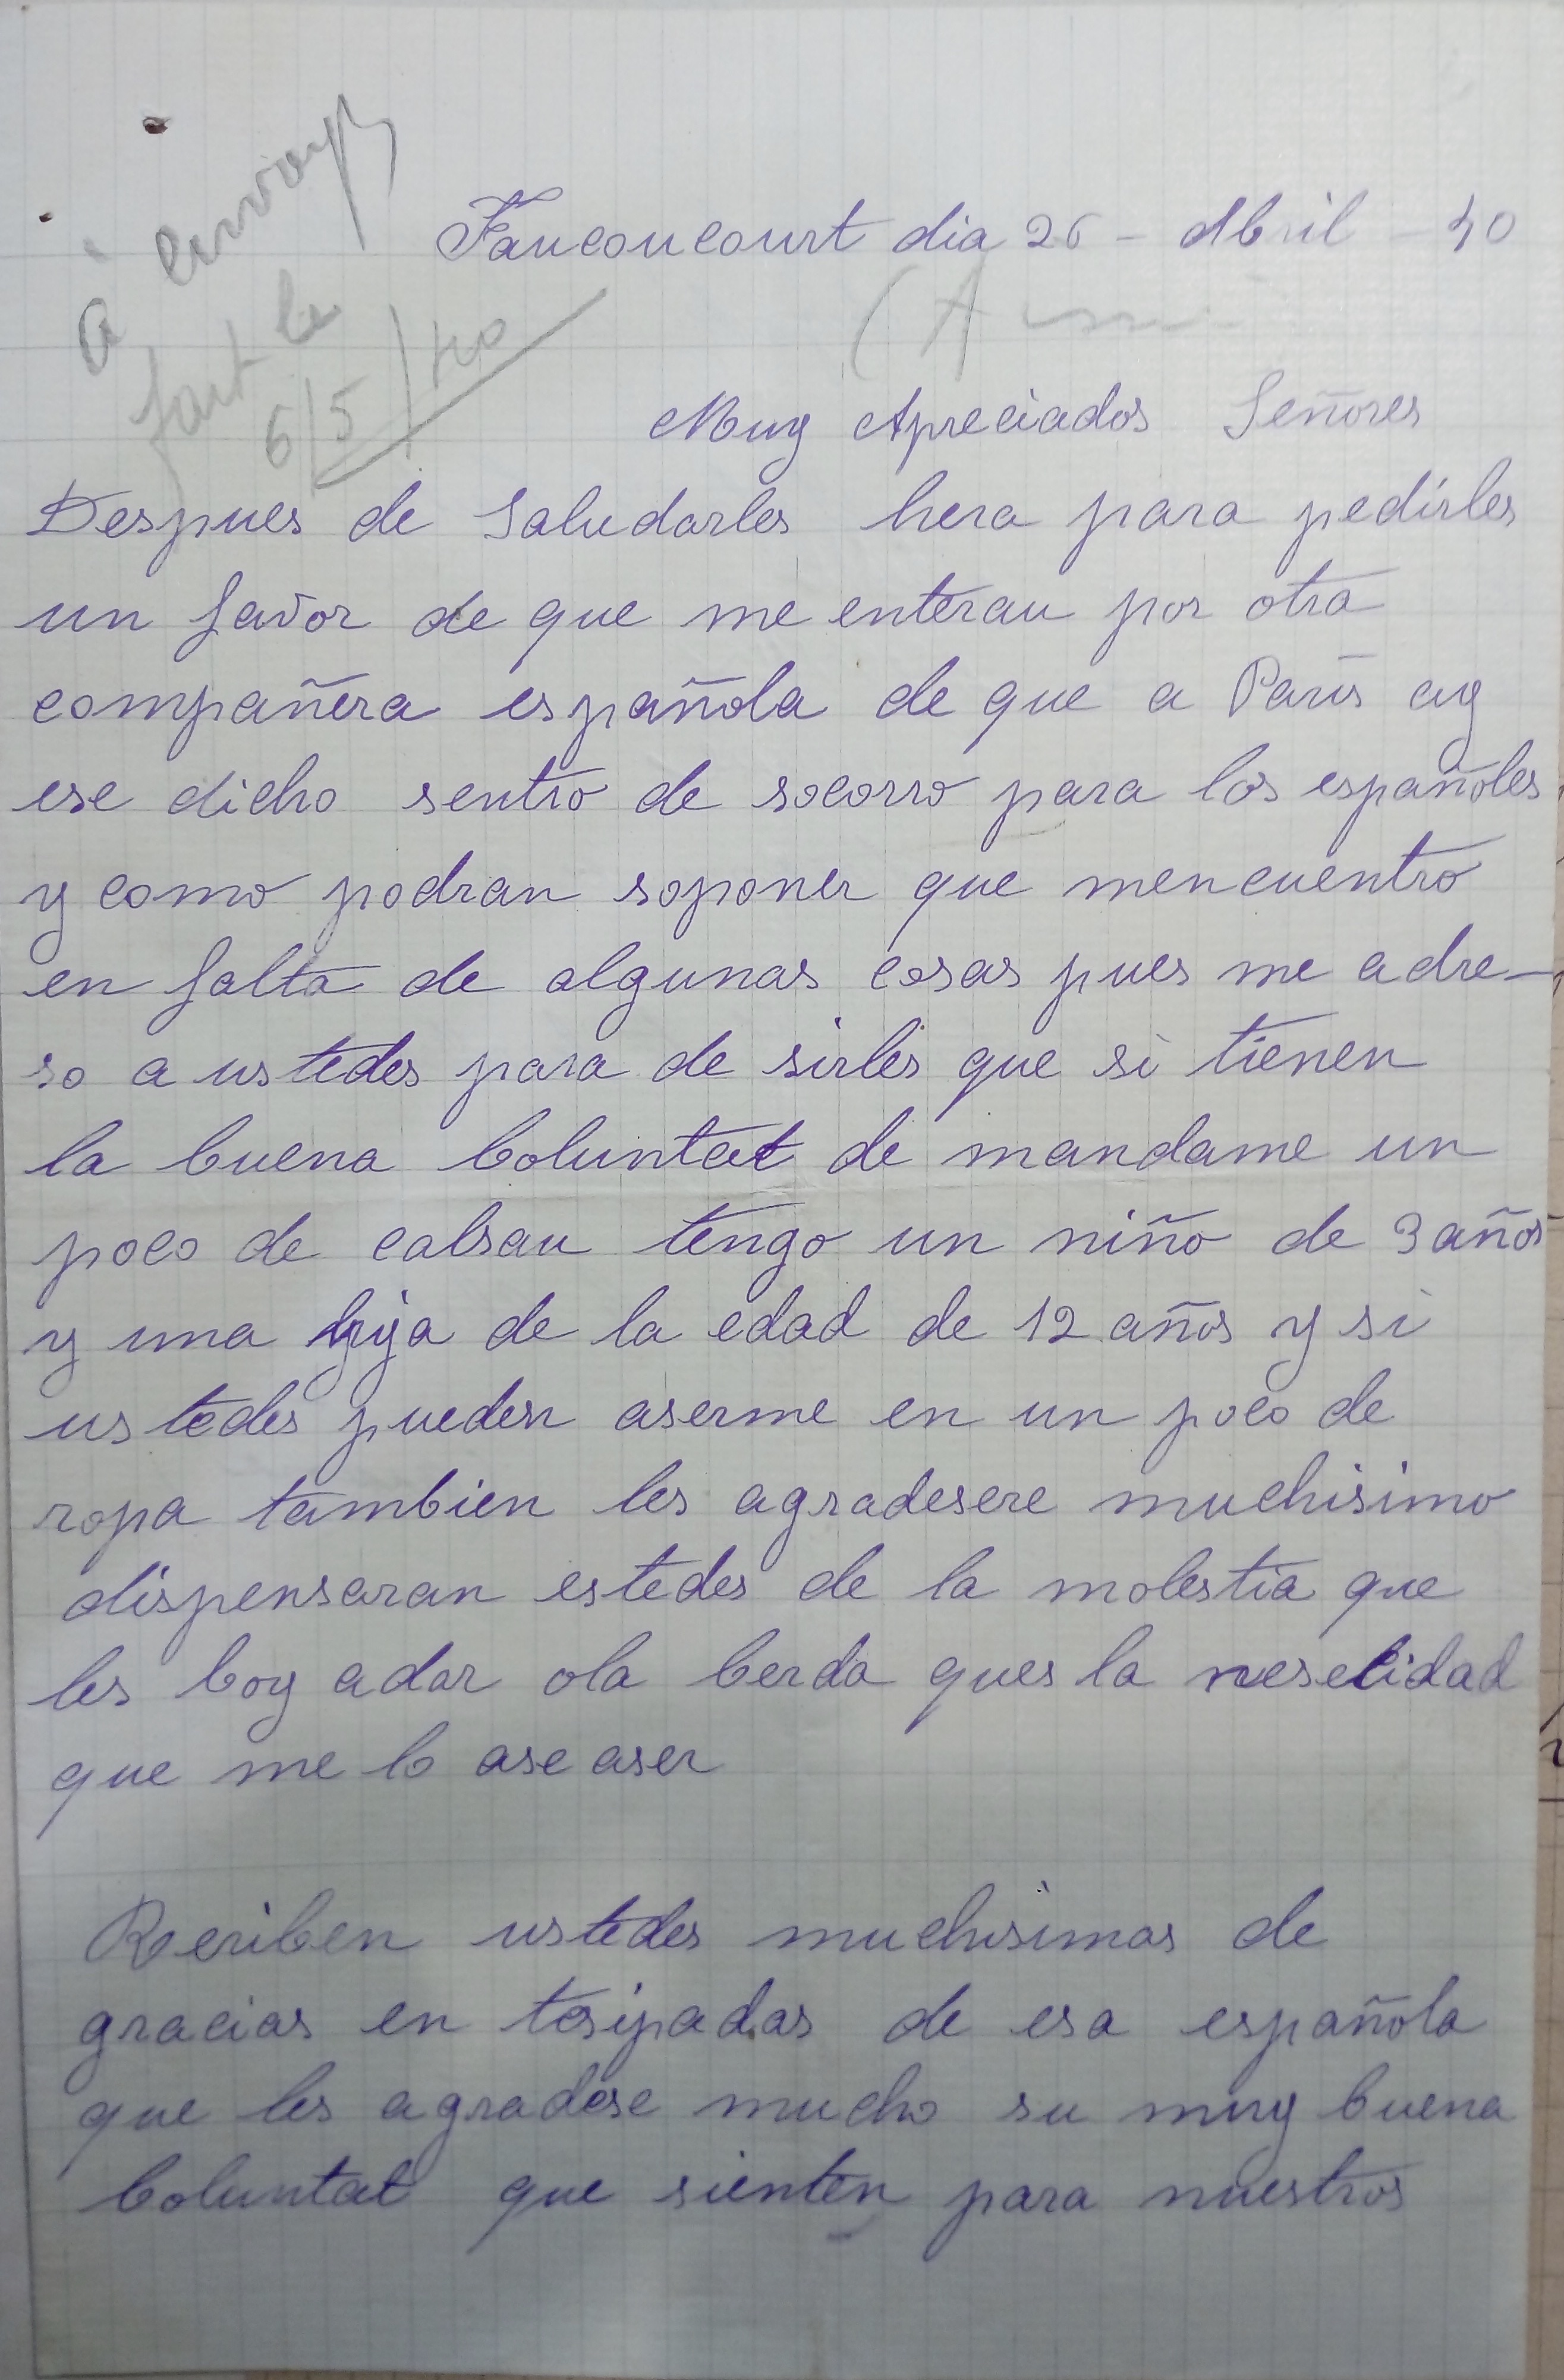 à envoyer
fait le
6/5/40
Fauconcourt dia 26 - Abril - 40
(A
Muy Apreciados Señores
Despues de Saludarles hera para pedirles
un favor de que me enterau por otra
compañera española de que a Paris ay
ese dicho sentro de socorro para los españoles
y como podran soponer que mencuentro
en falta de algunas cosas pues me adre-
so a ustedes para de sirles que si tienen
la buena boluntat de mandame un
poco de calsau tengo un niño de 3 años
y una hija de la edad de 12 años y si
ustedes pueden aserme en un poco de
ropa tambien les agradesere muchisimo
dispensaran estedes de la molestia que
les boy adar ola berda ques la nesesidad
que me lo ase aser
Reciben ustedes muchisimas de
gracias en tesipadas de esa española
que les agradese mucho su muy buena
boluntat que sienten para nuestros